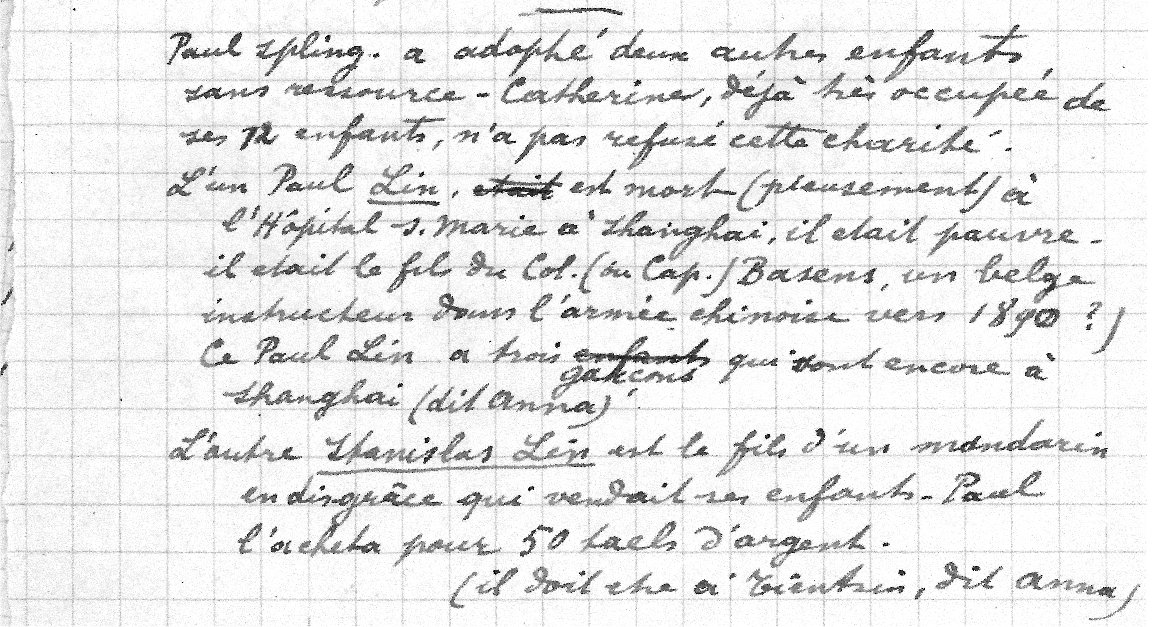 Paul Spling. a adopté deux autres enfants
sans ressource - Catherine, déjà très occupée de
ses 12 enfants, n'a pas refusé cette charité.
L'un Paul Lin, etait est mort (pieusement) à
l'Hôpital S. Marie à Shanghai, il etait pauvre -
il etait le fil du Col. (ou Cap.) Basens, un belge
instructeur dans l'armée chinoise vers 1890 ?)
Ce Paul Lin a trois enfants qui sont encore à
garçons
Shanghai (dit Anna)
L'autre Stanislas Lin est le fils d'un mandarin
en disgrâce qui vendait ses enfants - Paul
l'acheta pour 50 taels d'argent.
(il doit etre à Tientsin, dit Anna)